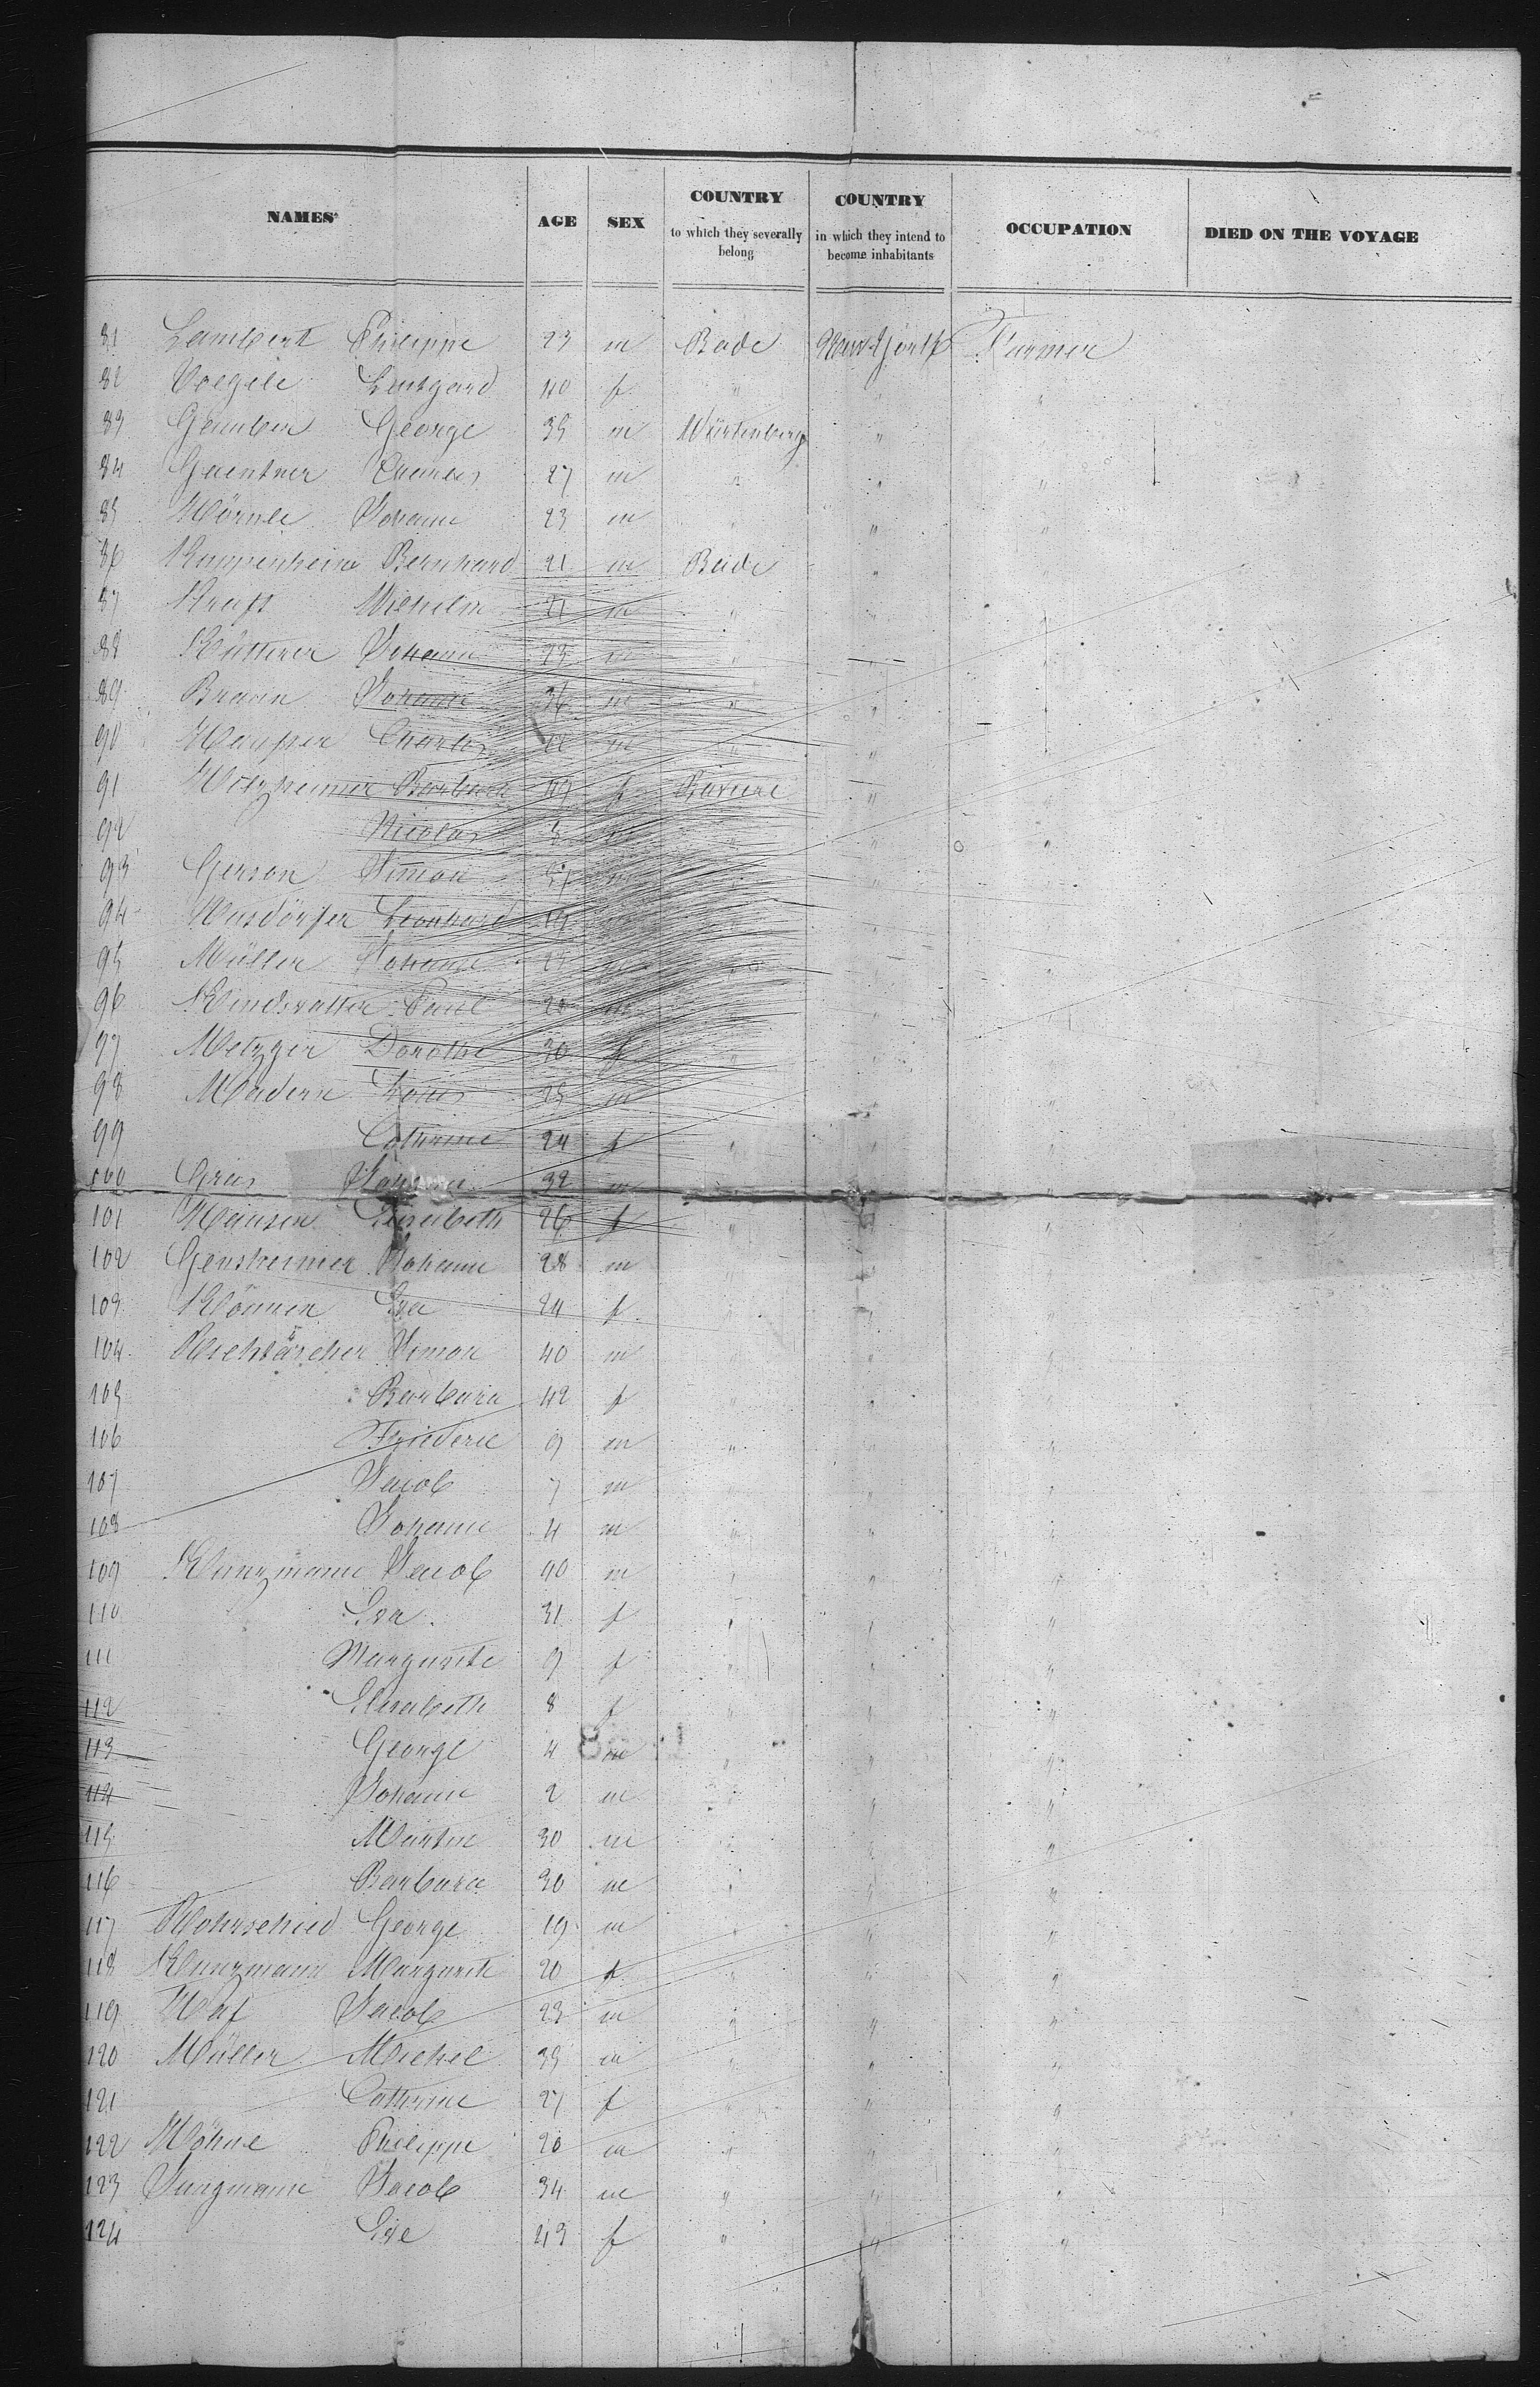 NAMES AGE SEX COUNTRY to which they severally belong COUNTRY in which they intend to become inhabitants OCCUPATION DIED ON THE VOYAGE
81 Lambert Philippe 23 m Bade New-York Farmer
82 Voegele Lutgard 40 f " " "
83 George 35 m Würtenberg "
84 Guentner Charles 27 m " " "
85 Hörnle Johann 23 m " " "
86 Bernhard 21 m Bade " "
87 Kraft Wilhelm 21 m " "
88 Johann 23 m " "
89 Braun Johann 36 m " "
90 Charles m " "
91 Holzheimer Barbara f Baviere " "
92 Nicolas " "
93 Gerson Simon "
94 Leonhard 19 "
95 Müller Johann 25
96 Paul 28 m "
97 Metzger Dorothe 30 f " "
98 Madern Louis 25 m "
99 Catherine 24 f " " "
100 Gras Johann 32 m
101 Hansen Elisabeth 26 f " " "
102 Gensheimer Johann 28 m " "
103 Eva 24 f " "
104 Simon 40 m " "
105 Barbara 42 f " " "
106 Friederic 9 m " " "
107 Jacob 7 m " " "
108 Johann 4 m " " "
109 Kunzmann Jacob 40 m " " "
110 Eva 31 f " " "
111 Margarete 9 f " " "
112 Elisabeth 8 f " " "
113 George 4 m " " "
114 Johann 2 m " "
115 Martin 30 m " " "
116 Barbara 30 m " " "
117 Rohrschied George 19 m " " "
118 Kunzmann Margarete 20 f " " "
119 Haf Jacob 23 m " " "
120 Müller Michel 35 m " " "
121 Catherine 27 f " " "
122 Höhne Philippe 20 m " " "
123 Jungmann Jacob 34 m " " "
124 Eve 43 f " " "